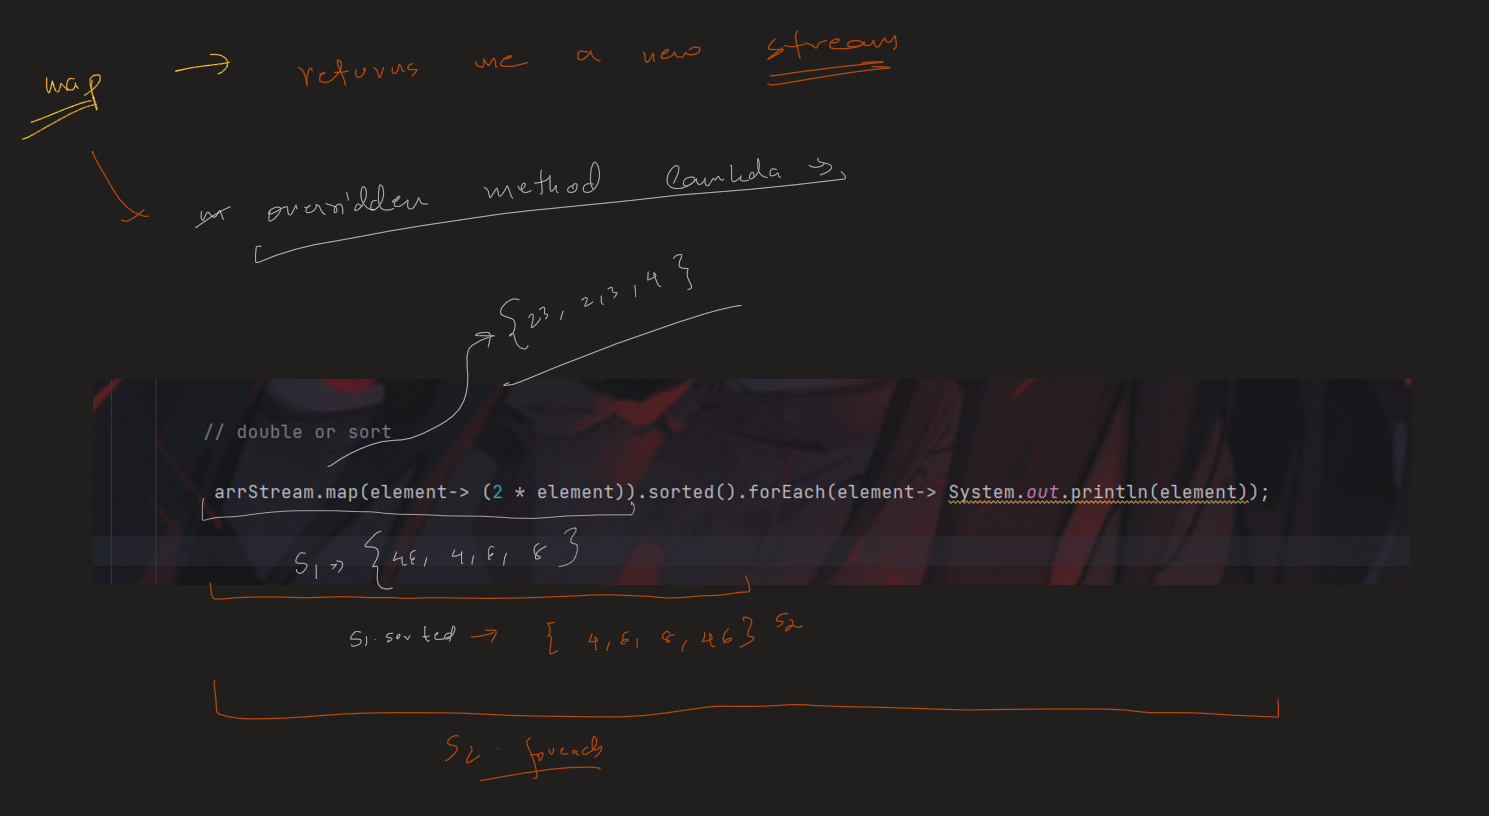 map → returns me a new stream
overridden method lambda →
{23, 2, 3, 4}
// double or sort
arrStream.map(element-> (2 * element)).sorted().forEach(element-> System.out.println(element));
S1 → {46, 4, 6, 8}
S1.sorted → { 4, 6, 8, 46} S2
S2 . foreach